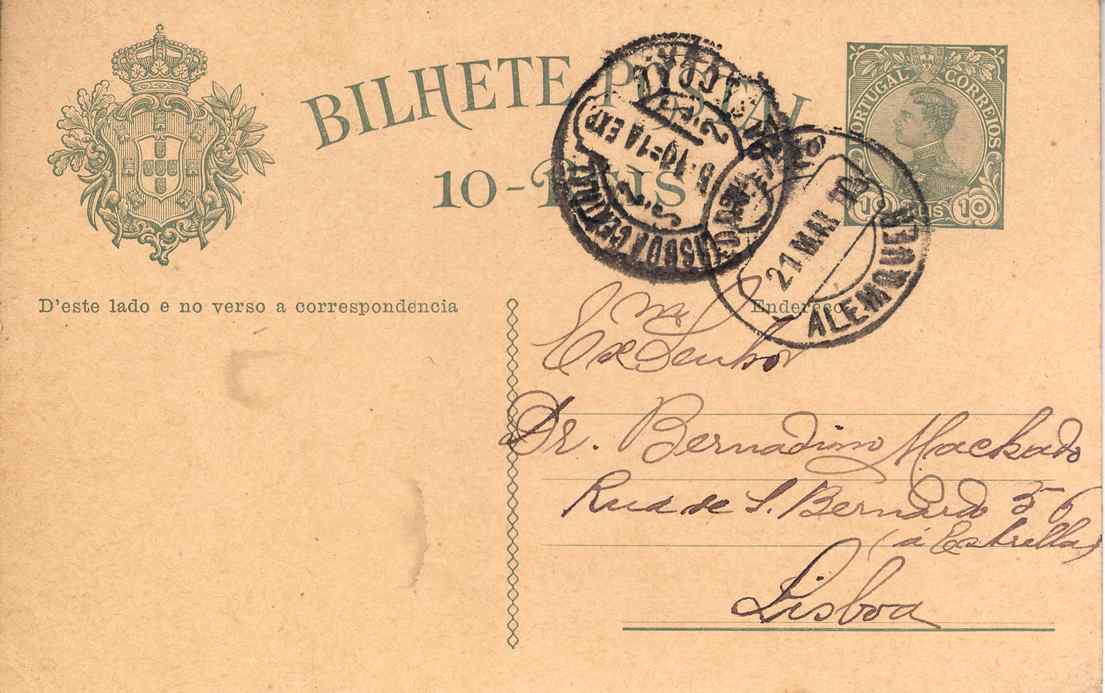 BILHETE POSTAL
10-REIS
PORTUGAL CORREIOS
10 REIS 10
LISBOA CENTRAL
21 MAR
ALEMQUER
D'este lado e no verso a correspondencia
Endereço
Exmo Senhor
Dr. Bernadino Machado
Rua de S. Bernardo 56
(á Estrella)
Lisboa